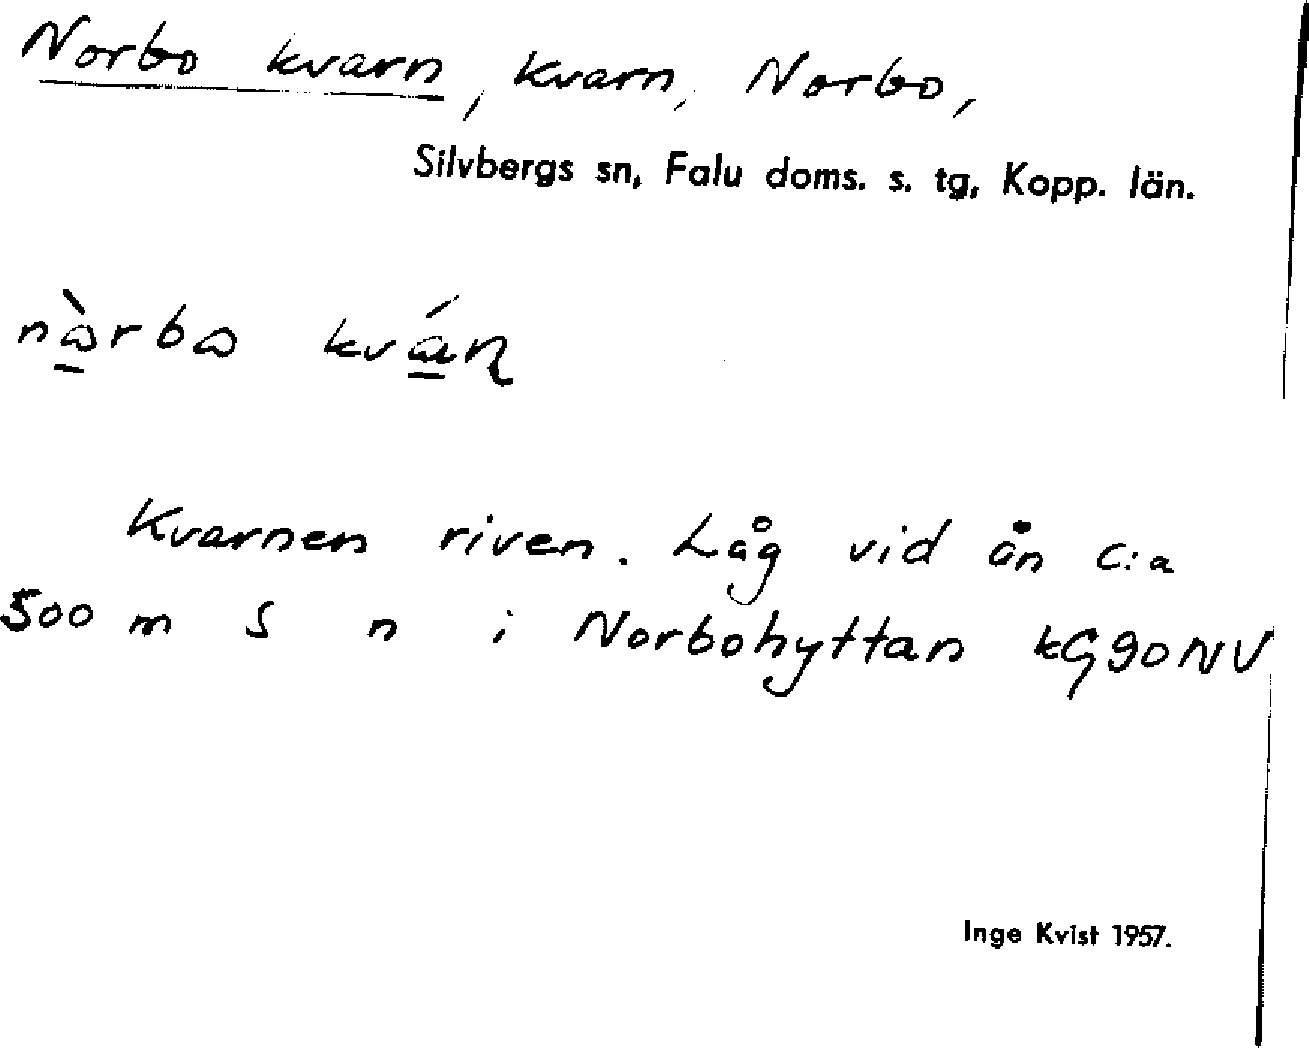 Norbo kvarn, kvarn, Norbo,
Silvbergs sn, Falu doms. s. tg, Kopp. län.
nàrba kván
Kvarnen riven. Låg vid ån c:a
500 m S n i Norbohyttan kG90NV
Inge Kvist 1957.